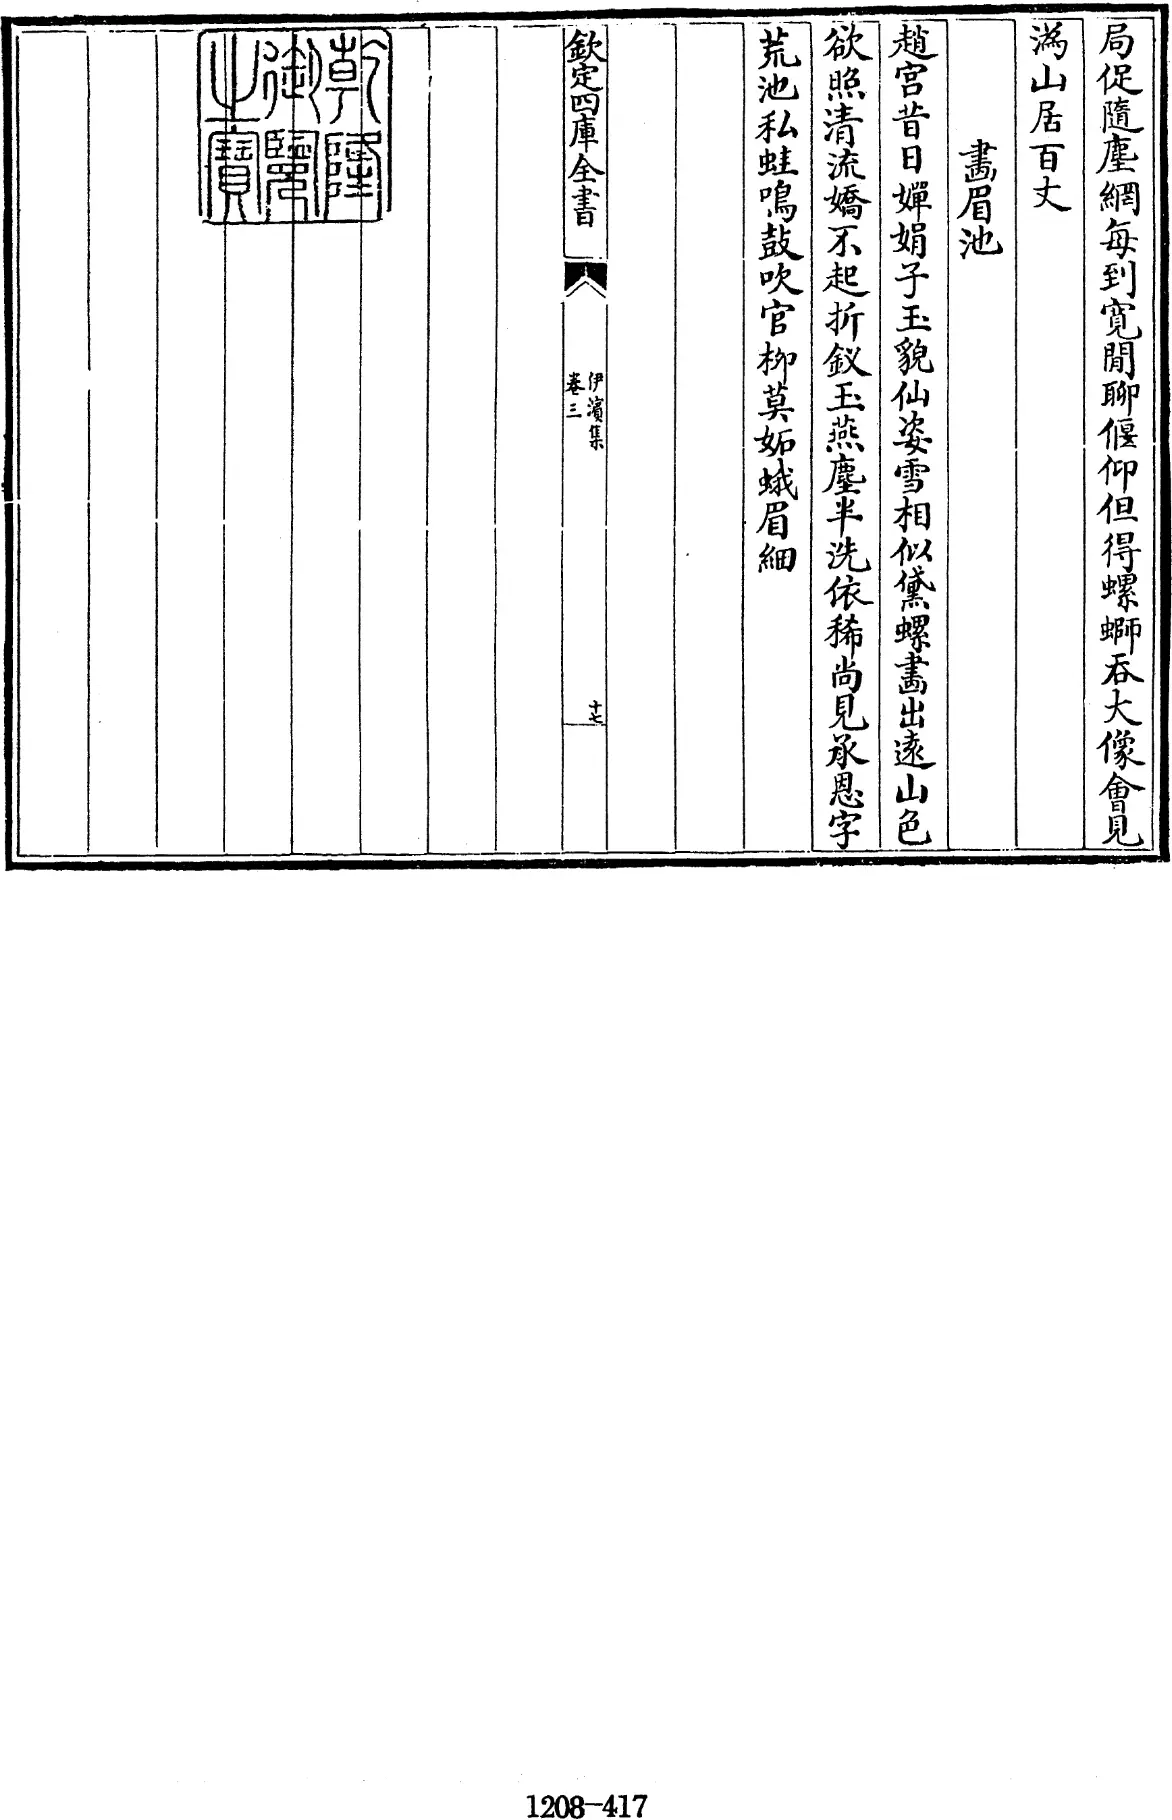 局促隨塵網每到寛閒聊偃仰但得螺螄吞大像會見
溈山居百丈
畵眉池
趙宫昔日嬋娟子玉貌仙姿雪相似黛螺畵出逺山色
欲照清流嬌不起折釵玉燕塵半洗依稀尚見承恩字
荒池私蛙鳴鼓吹官栁莫妬蛾眉細
欽定四庫全書
伊濱集
卷三
十七
乾隆
御覽
之寳
1208-417